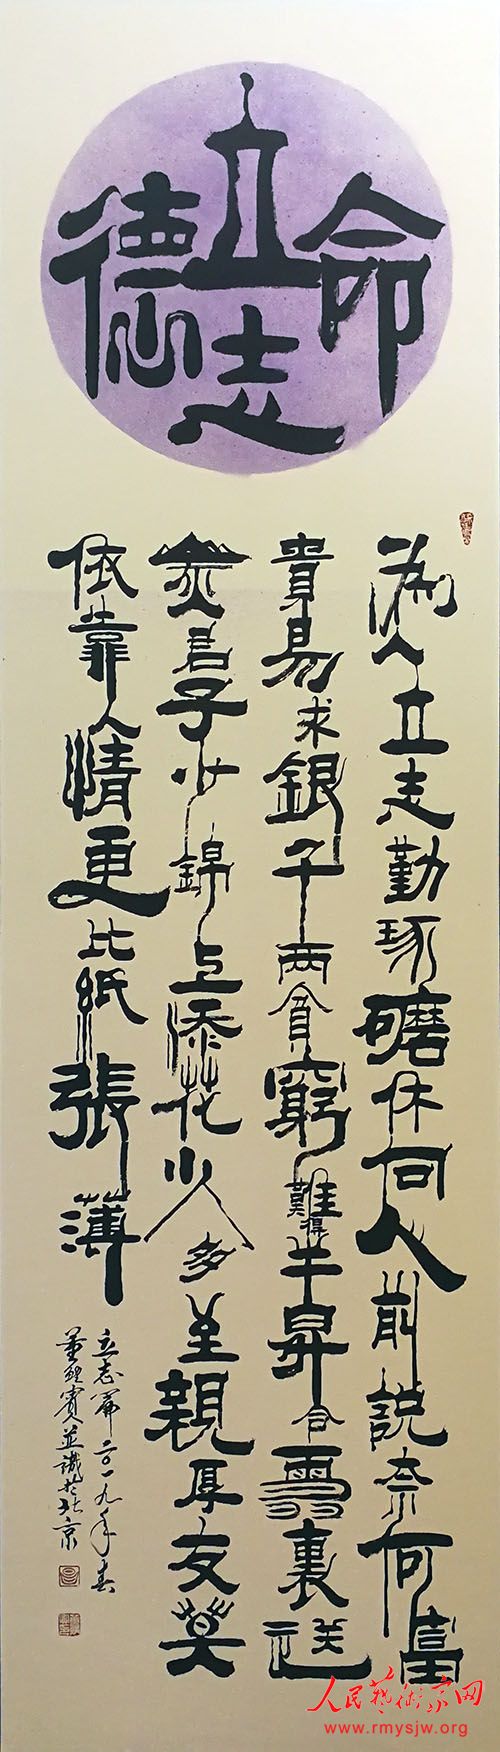 德立命
志
為人立志勤琢磨休向人前說奈何富
貴易求銀千兩貧窮難得半昇合雪裏送
炭君子少錦上添花小人多至親厚友莫
依靠人情更比紙張薄
立志篇二〇一九年春
董賓並識於北京
人民藝術家网
www.rmysjw.org